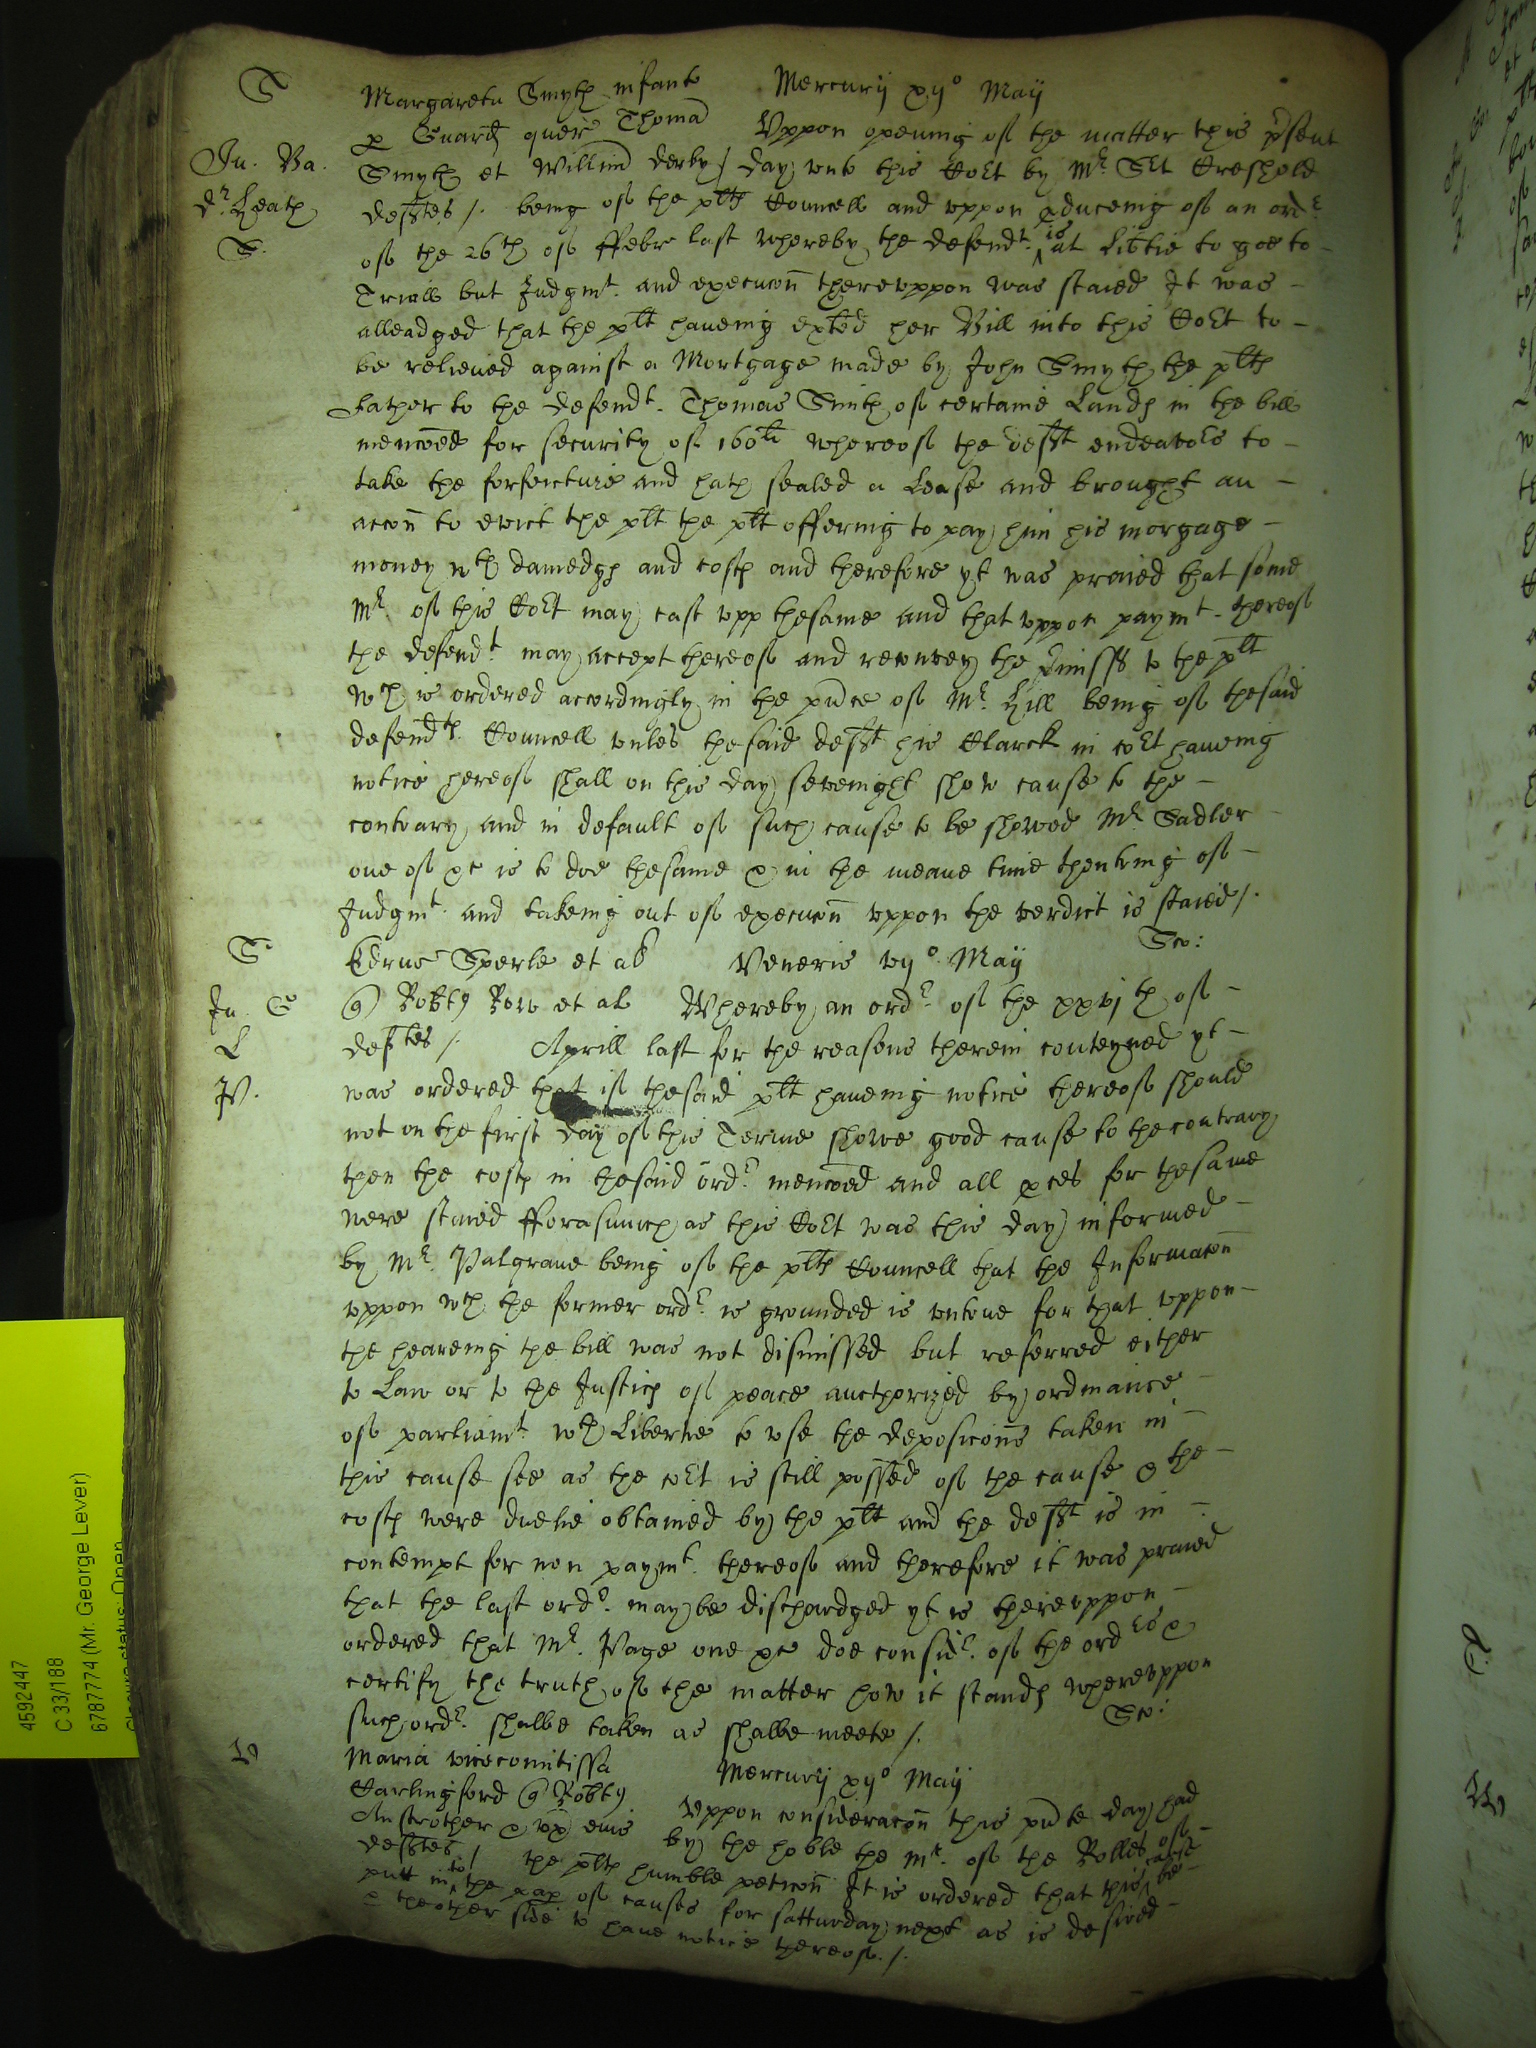 S
Margareta Smyth infans Mercurij xijo Maij
p Guard quer Thoma Vppon openinig of the matter this pᵣsent
Ju. Ba.
Smyth et Willim Derby day vnto this Coᵣt by Mr Sᵣt Creshold
dr Heath
deftes /. being of the plts Councell and vppon pduceing of an ordr
S.
of the 26th of ffebr last whereby the defendt. is at libtie to goe to
Triall but Judgmt. and execucon therevppon was staied It was
alleadged that the plt haueing exhted her Bill into this Cort to
be relieued against a Mortgage made by John Smyth the plts
father to the defendt. Thomas Smith of certaine Lands in the bill
mencoed for security of 160li whereof the deft endeavors to
take the forfeicture and hath sealed a Lease and brought an
accon to evict the plt the plt offering to pay him his morgage
money wth damedgs and costs and therefore yt was praied that some
Mr. of this Cort may cast vpp thesame and that vppon paymt. thereof
the defendt. may accept thereof and reconvey the pmisses to the plt
wch is ordered accordingly in the pnce of Mr. Hill being of thesaid
defendts. Councell vnles thesaid deft his Clarck in cort haueing
notice hereof shall on this day sevenight shew cause to the
contrary and in default of such cause to be shewed Mr. Sadler
one of &c is to doe thesame & in the meane time thentring of
Judgmt. and takeing out of execucon vppon the verdict is staied /.
Sco:
S
Edrus Sperle et al Veneris vijo. Maij
Ju. G
Robty Row et al Whereby an ordr. of the xxvjth of
L
deftes /. Aprill last for the reasons therein conteyned yt
P.
was ordered that if thesaid plt haueing notice thereof should
not on the first day of this Terme shewe good cause to the contrary
then the costs in thesaid ordr. mencoed and all pces for thesame
were staied fforasmuch as this Cort was this day informed
by Mr. Palgraue being of the plts Councell that the Informacon
vppon wch the former ordr. is grounded is vntrue for that vppon
the heareing the bill was not dismissed but referred either
to Law or to the Justics of peace aucthorized by ordinance
of parliamt. wth Libertie to vse the deposicons taken in
this cause soe as the cort is still possed of the cause & the
costs were duelie obtained by the plt and the deft is in
contempt for non paymt. thereof and therefore it was praied
that the last ordr. may be dischardged yt is therevppon
ordered that Mr. Page one &c doe considr. of the ordrs &
certify the truth of the matter how it stands wherevppon
such ordr. shalbe taken as shalbe meete /.
Sco:
Maria vicecomitissa Mercurij xijo Maij
Carlingford Robty
Anstrother & vx eius Vppon consideracon this pnte day had
deftes / by the hoble the Mr. of the Rolles of
the plts humble peticon It is ordered that this cause be
putt into the pap of causes for Satturday next as is desired
& the other side to haue notice thereof. /.
4592447
C 33/188
6787774 (Mr. George Lever)
Closure status: Open